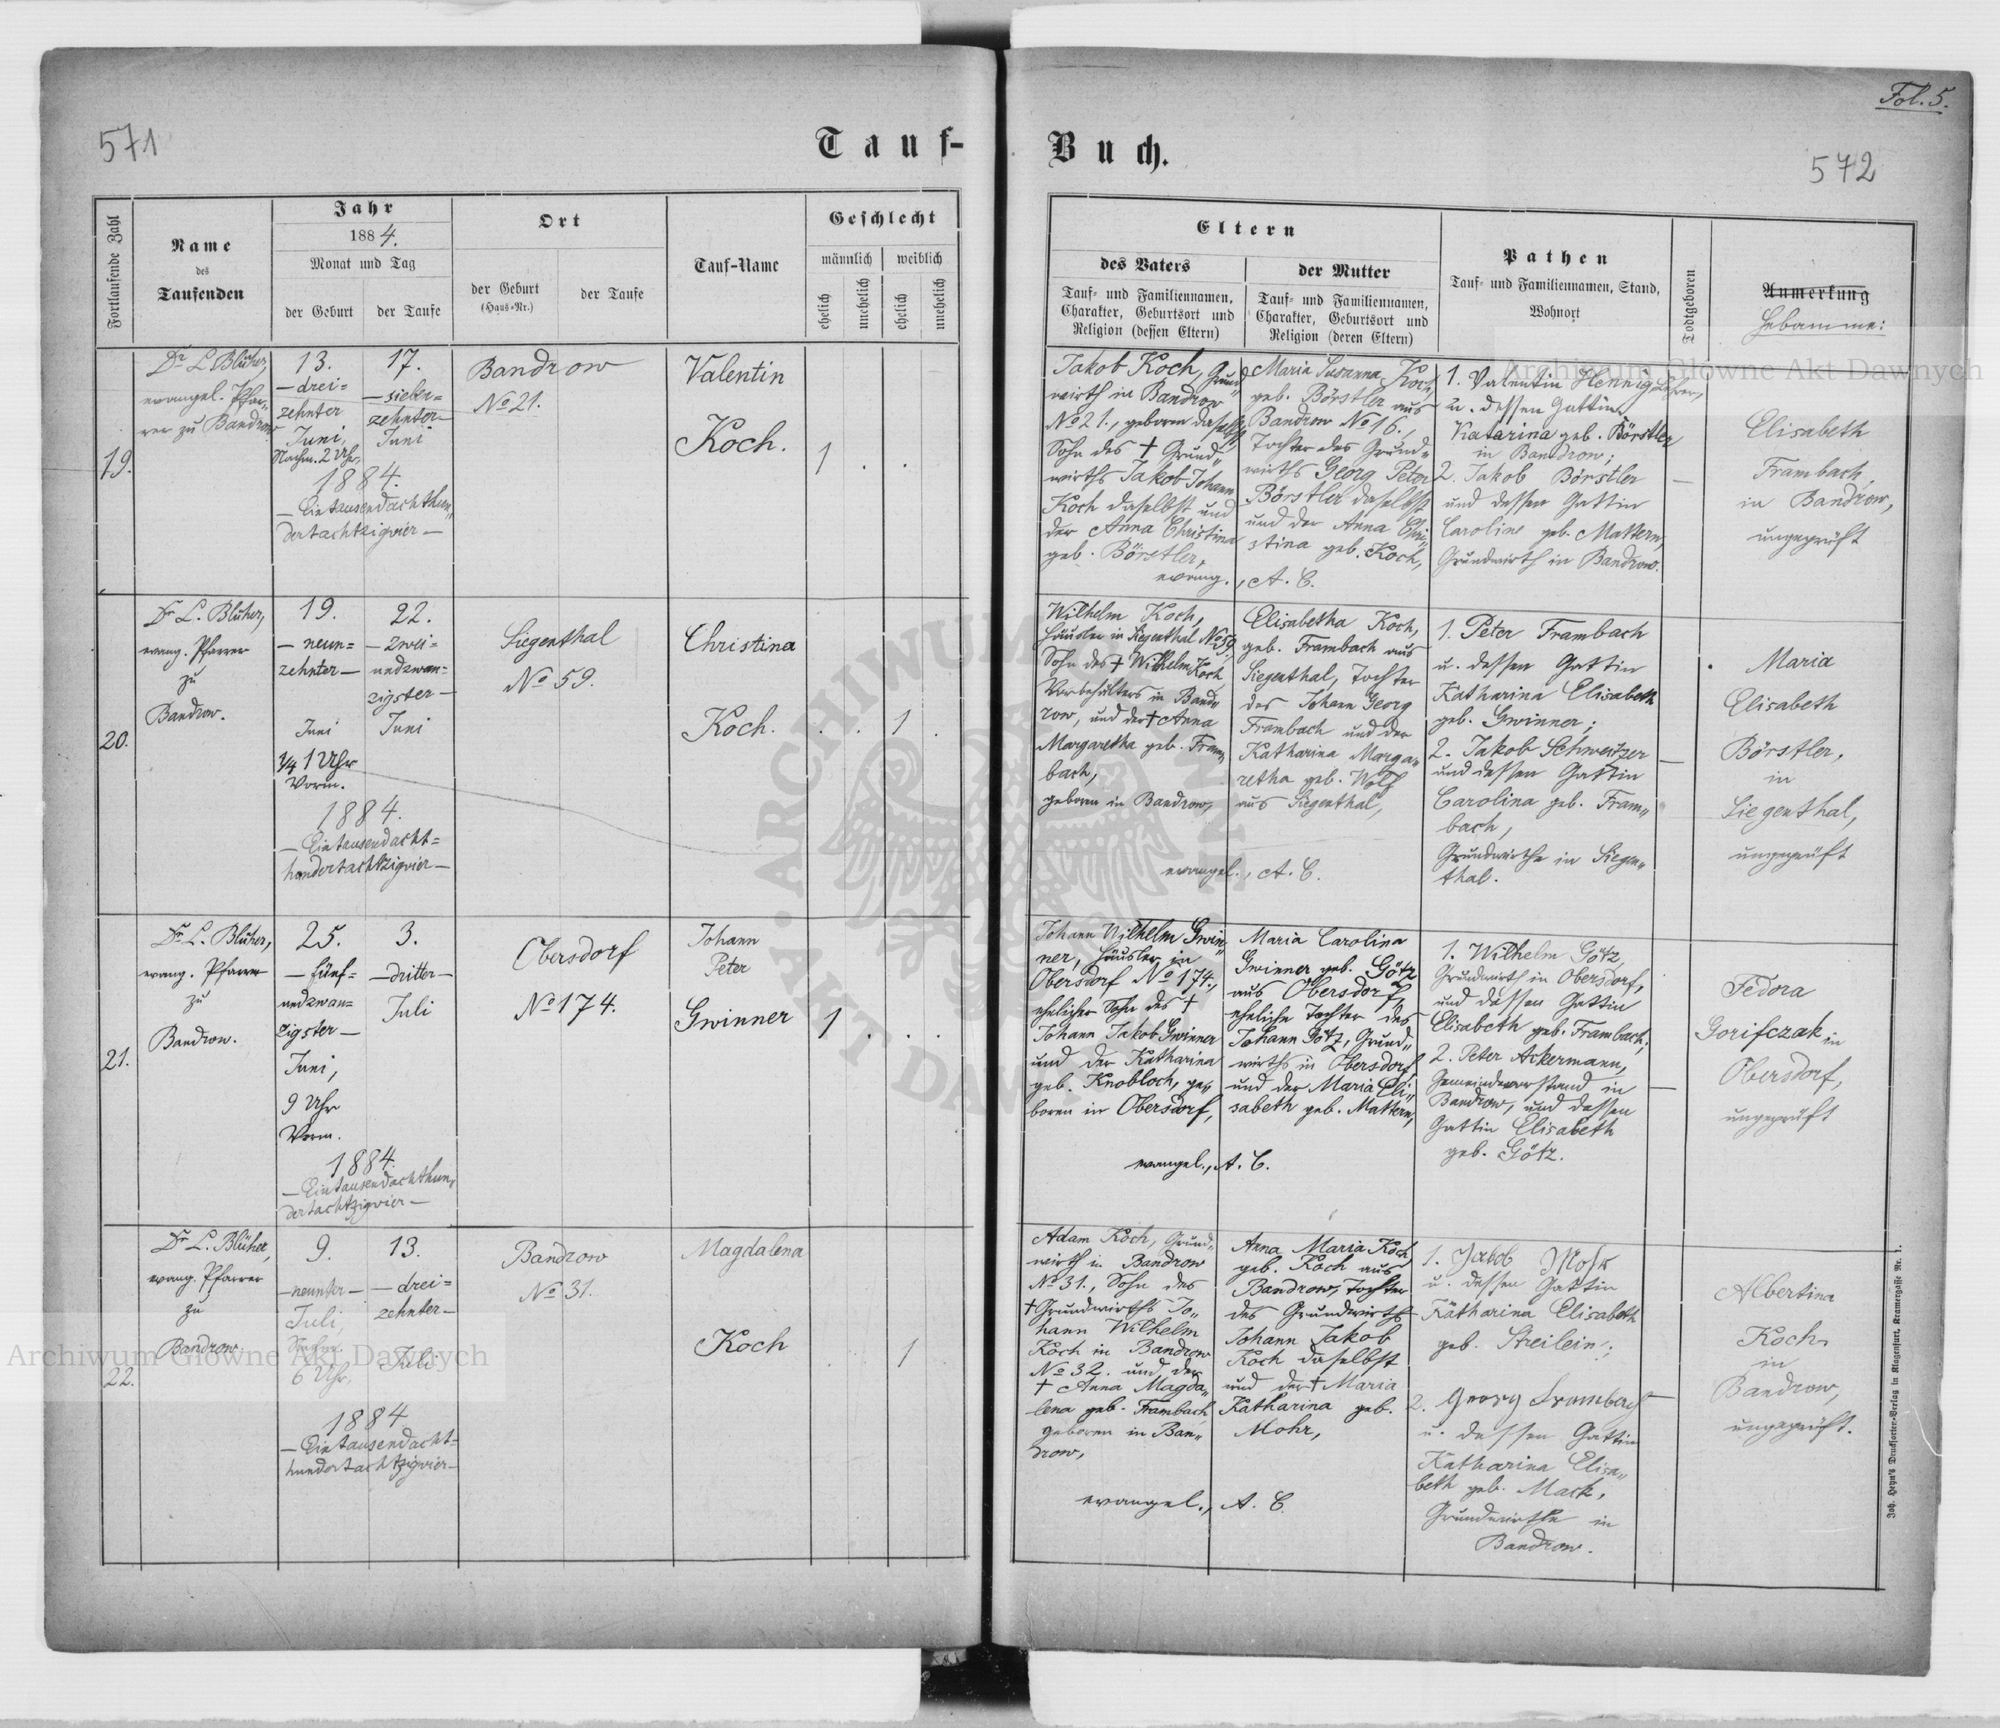 571
Tauf-
Fortlaufende Zahl
Name
des
Taufenden
Jahr
1884.
Monat und Tag
der Geburt
der Taufe
Ort
der Geburt
(Haus-Nr.)
der Taufe
Tauf-Name
Geschlecht
männlich
weiblich
ehelich
unehelich
ehelich
unehelich
19.
Dr L. Blüher,
evangel. Pfar-
rer zu Bandrow
13.
— drei=
zehnter
Juni,
Nachm. 2 Uhr,
17.
— sieben=
zehnter
Juni
1884.
— Eintausendachthun„
dertachtzigvier —
Bandrow
No 21.
Valentin
Koch.
1 . . .
20.
Dr L. Blüher,
evang. Pfarrer
zu
Bandrow.
19.
— neun=
zehnter —
Juni
1/4 1 Uhr
Vorm.
22.
— zwei=
undzwan=
zigster —
Juni
1884.
— Eintausendacht=
hundertachtzigvier —
Siegenthal
No 59.
Christina
Koch.
. . 1 .
21.
Dr L. Blüher,
evang. Pfarrer
zu
Bandrow.
25.
— fünf=
undzwan=
zigster —
Juni,
9 Uhr
Vorm.
3.
— dritter —
Juli
1884.
— Eintausendachthun„
dertachtzigvier —
Obersdorf
No 174.
Johann
Peter
Gwinner
1 . . .
22.
Dr L. Blüher,
evang. Pfarrer
zu
Bandrow
9.
— neunter —
Juli,
6 Uhr,
13.
— drei=
zehnter —
Juli
1884
— Eintausendacht=
hundertachtzigvier —
Bandrow
No 31.
Magdalena
Koch
. . 1 .
Fol. 5.
Buch.
572
Eltern
des Vaters
Tauf- und Familiennamen,
Charakter, Geburtsort und
Religion (dessen Eltern)
der Mutter
Tauf- und Familiennamen,
Charakter, Geburtsort und
Religion (deren Eltern)
Pathen
Tauf- und Familiennamen, Stand,
Wohnort
Todtgeboren
Anmerkung
Hebamme:
Jakob Koch, Grund„
wirth in Bandrow
No 21., geboren daselbst
Sohn des † Grund„
wirths Jakob Johann
Koch daselbst und
der Anna Christina
geb. Börstler,
Maria Susanna Koch,
geb. Börstler aus
Bandrow No 16.,
Tochter des Grund„
wirths Georg Peter
Börstler daselbst
und der Anna Chri„
stina geb. Koch,
evang., A. C.
1. Valentin Hennig Lehrer,
u. dessen Gattin
Katarina geb. Börstler
in Bandrow;
2. Jakob Börstler
und dessen Gattin
Caroline geb. Mattern,
Grundwirth in Bandrow.
—
Elisabeth
Frambach,
in Bandrow,
ungeprüft
Wilhelm Koch,
Häusler in Siegenthal No 59,
Sohn des † Wilhelm Koch
Vorbehälters in Band„
row, und der † Anna
Margaretha geb. Fram„
bach,
geboren in Bandrow,
Elisabetha Koch,
geb. Frambach aus
Siegenthal, Tochter
des Johann Georg
Frambach und der
Katharina Marga„
retha geb. Wolf
aus Siegenthal,
evangel., A. C.
1. Peter Frambach
u. dessen Gattin
Katharina Elisabeth
geb. Gwinner;
2. Jakob Schweitzer
und dessen Gattin
Carolina geb. Fram„
bach,
Grundwirthe in Siegen„
thal.
—
Maria
Elisabeth
Börstler,
in
Siegenthal,
ungeprüft
Johann Wilhelm Gwin„
ner, Häusler in
Obersdorf No 174.,
ehelicher Sohn des †
Johann Jakob Gwinner
und der Katharina
geb. Knobloch, ge„
boren in Obersdorf,
Maria Carolina
Gwinner geb. Götz
aus Obersdorf,
eheliche Tochter des
Johann Götz, Grund„
wirths in Obersdorf
und der Maria Eli„
sabeth geb. Mattern,
evangel., A. C.
1. Wilhelm Götz,
Grundwirth in Obersdorf,
und dessen Gattin
Elisabeth geb. Frambach;
2. Peter Ackermann,
Gemeindevorstand in
Bandrow, und dessen
Gattin Elisabeth
geb. Götz.
—
Fedora
Gorifczak in
Obersdorf,
ungeprüft
Adam Koch, Grund„
wirth in Bandrow
No 31., Sohn des
† Grundwirths Jo„
hann Wilhelm
Koch in Bandrow
No 32. und der
† Anna Magda„
lena geb. Frambach
geboren in Ban„
drow,
Anna Maria Koch
geb. Koch aus
Bandrow, Tochter
des Grundwirths
Johann Jakob
Koch daselbst
und der † Maria
Katharina geb.
Mohr,
evangel., A. C.
1. Jakob Mohr
u. dessen Gattin
Katharina Elisabeth
geb. Streilein;
2. Georg Frambach
u. dessen Gattin
Katharina Elisa„
beth geb. Mack,
Grundwirthe in
Bandrow.
—
Albertina
Koch
in
Bandrow,
ungeprüft.
Joh. Heyn's Drucksorten-Verlag in Klagenfurt, Kramergasse Nr. 1.
Archiwum Główne Akt Dawnych
Archiwum Główne Akt Dawnych